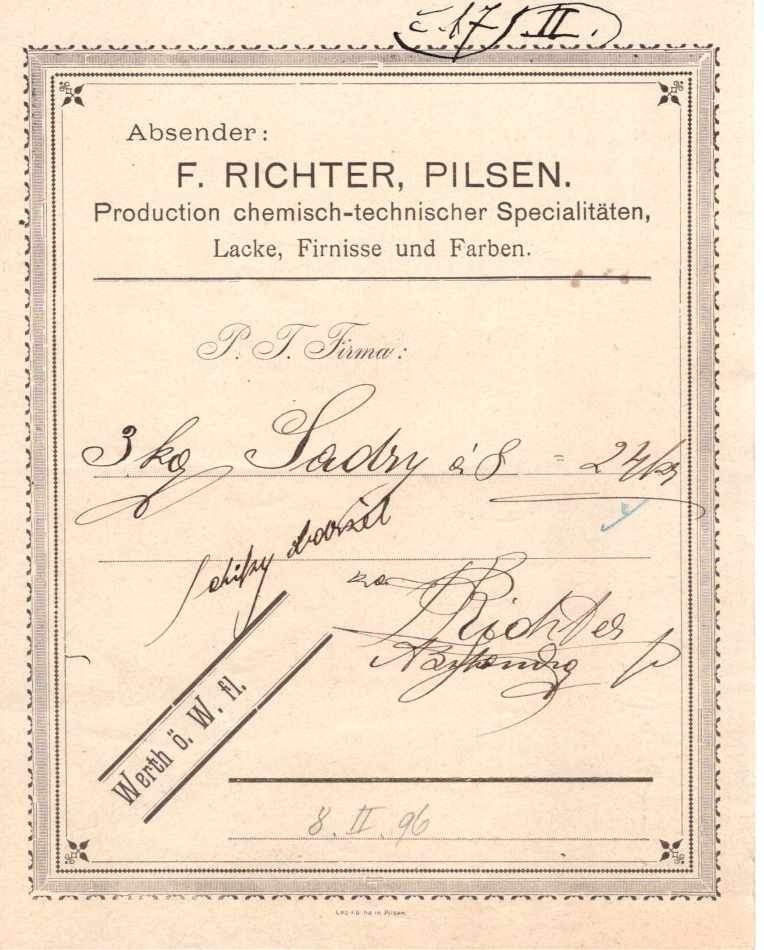 č. 17/II.
Absender:
F. RICHTER, PILSEN.
Production chemisch-technischer Specialitäten,
Lacke, Firnisse und Farben.
P. T. Firma:
3 kg Sadry à 8 = 24 kr
za
Richter
Werth ö. W. fl.
8. II. 96